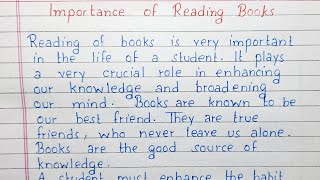 Importance of Reading Books
Reading of books is very important
in the life of a student. It plays
a very crucial role in enhancing
our knowledge and broadening
our mind. Books are known to be
our best friend. They are true
friends, who never leave us alone.
Books are the good source of
knowledge.
A student must enhance the habit